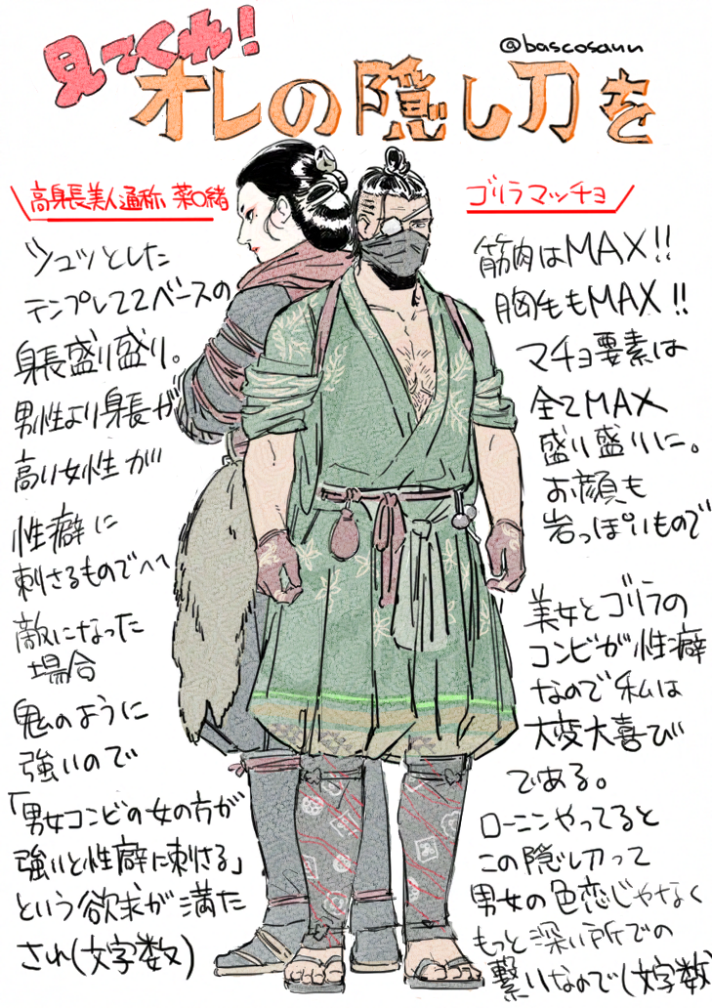 見てくれ!
@bascosaun
オレの隠し刀を
高身長美人通称 薬〇緒
シュッとした
テンプレ22ベースの
身長盛り盛り。
男性より身長が
高い女性が
性癖に
刺さるもので^^
敵になった
場合
鬼のように
強いので
「男女コンビの女の方が
強いと性癖に刺さる」
という欲求が満た
され(文字数)
ゴリラマッチョ
筋肉はMAX!!
胸毛もMAX!!
マチョ要素は
全てMAX
盛り盛りに。
お顔も
岩っぽいもので
美女とゴリラの
コンビが性癖
なので私は
大変大喜び
である。
ローニンやってると
この隠し刀って
男女の色恋じゃなく
もっと深い所での
繋いなので(文字数